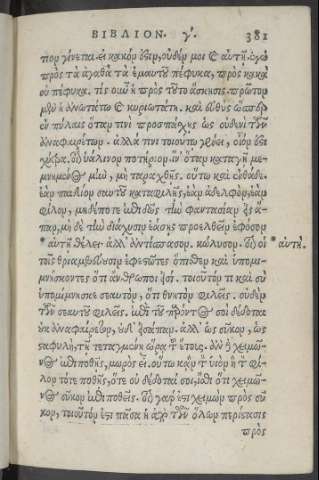 ΒΙΒΛΙΟΝ. γ΄. 381
που γίνεται. εἰ κακόν ἐστιν, οὐθέν μοι καὶ αὐτῇ. ἐγὼ
πρὸς τὰ ἀγαθὰ τὰ ἐμαυτοῦ πέφυκα, πρὸς κακὰ
οὐ πέφυκα. τίς οὖν ἡ πρὸς τοῦτο ἄσκησις. πρῶτον
μὲν ἡ ἀνωτάτω καὶ κυριωτάτη. καὶ εὐθὺς ὥσπερ
ἐν πύλαις ὅταν τινὶ προσπάσχῃς ὡς οὐδενὶ τῶν
ἀναφαιρέτων. ἀλλά τινι τοιούτῳ γένει, οἷόν ἐστι
χύτρα. οἷον ὑάλινον ποτήριον. ἵν' ὅταν καταγῇ με-
μνημένος μὴ ταραχθῇς. οὕτω καὶ ἐνθάδε.
ἐὰν παιδίον σαυτοῦ καταφιλῇς, ἐὰν ἀδελφὸν, ἐὰν
φίλον, μηδέποτε ἐπιδῷς τὴν φαντασίαν εἰς ἅ-
παν, μηδὲ τὴν διάχυσιν ἐάσῃς προελθεῖν ἐφόσον
* αὐτὴ θέλει. ἀλλ' ἀντίσπασον. κώλυσον. οἷον οἱ * αὐτή.
τοῖς θριαμβεύουσιν ἐφεστῶτες ὄπισθεν καὶ ὑπομι-
μνήσκοντες ὅτι ἄνθρωποί εἰσι. τοιοῦτόν τι καὶ σὺ
ὑπομίμνησκε σεαυτὸν, ὅτι θνητὸν φιλεῖς. οὐθὲν
τῶν σεαυτοῦ φιλεῖς. ἐπὶ τοῦ παρόντος σοὶ δέδοται
οὐκ ἀναφαίρετον, οὐδ' εἰσάπαν. ἀλλ' ὡς σῦκον, ὡς
σταφυλὴ, τῇ τεταγμένῃ ὥρᾳ τοῦ ἔτους. ἂν δὲ χειμῶ-
νος ἐπιποθῇς, μωρὸς εἶ. οὕτω κἂν τὸν υἱὸν ἢ τὸν φί-
λον τότε ποθῇς, ὅτε οὐ δέδοταί σοι, ἴσθι ὅτι χειμῶ-
νος σῦκον ἐπιποθεῖς. οἷον γάρ ἐστι χειμὼν πρὸς σῦ-
κον, τοιοῦτόν ἐστι πᾶσα ἡ ἀπὸ τῶν ὅλων περίστασις
πρὸς